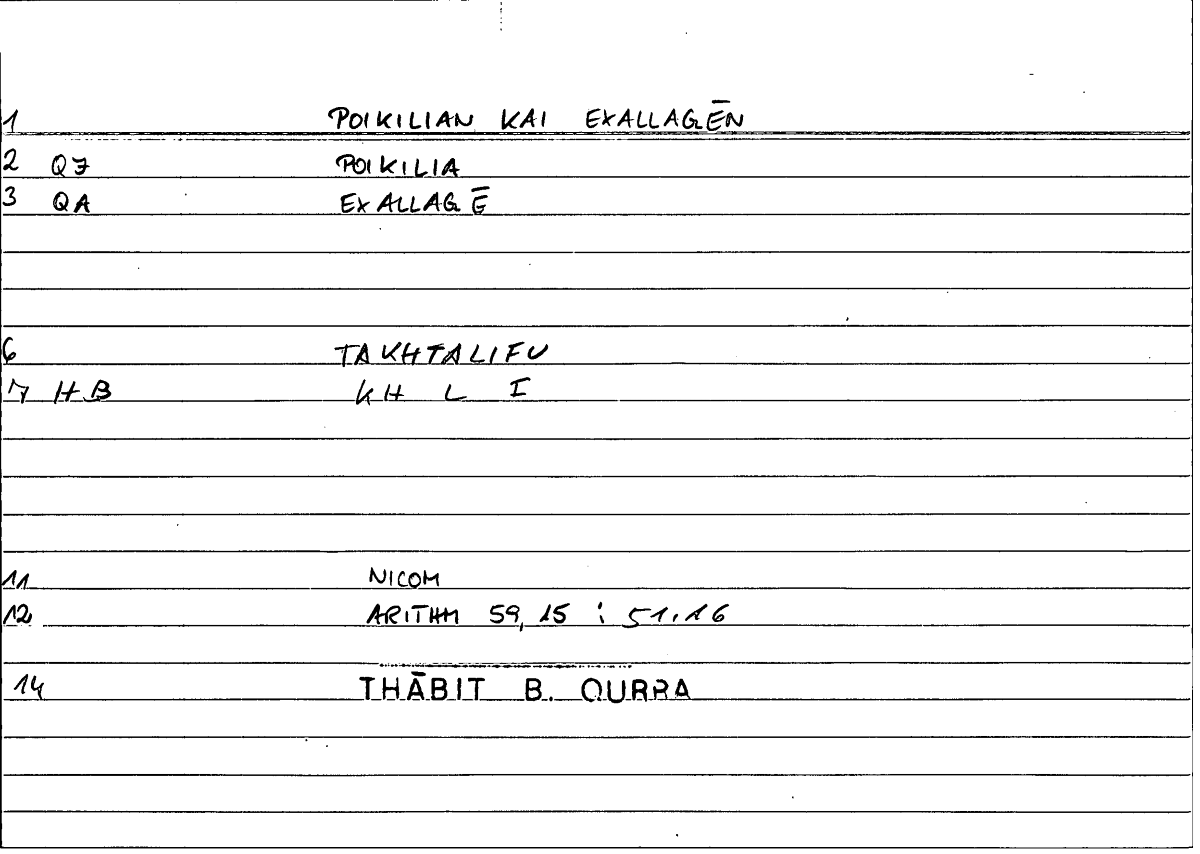 1 POIKILIAN KAI EXALLAGĒN
2 QJ POIKILIA
3 QA EXALLAGĒ
6 TAKHTALIFU
7 HB KH L I
11 NICOM
12 ARITHM 59,15 : 51.16
14 THĀBIT B. QURRA